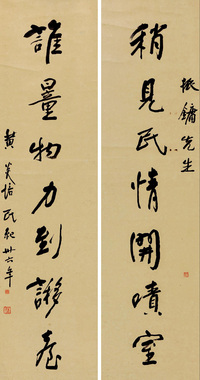 鏞先生
稍見民情開嘖室
誰量物力到謻臺
黃炎培 民紀卅六年